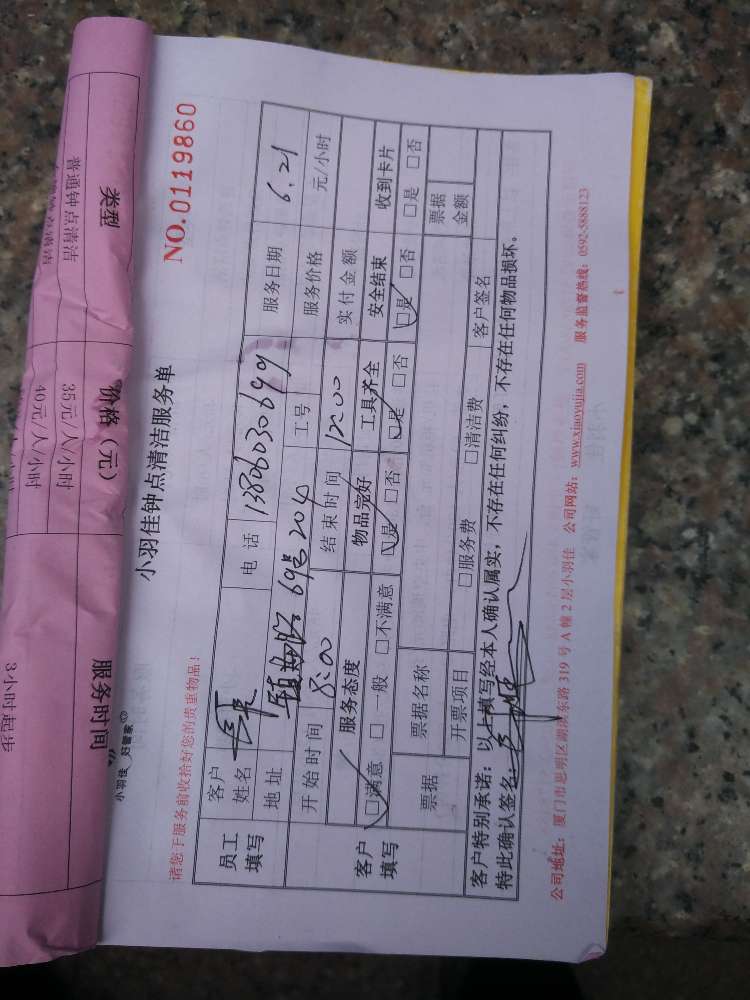 类型 价格（元） 服务时间
普通钟点清洁 35元/人/小时
40元/人/小时
3小时起步
小羽佳 好管家
小羽佳钟点清洁服务单
NO.0119860
请您于服务前收拾好您的贵重物品！
员工填写 客户姓名 电话 13806030699 服务日期 6.21
地址 69号204 工号 服务价格 元/小时
开始时间 8:00 结束时间 12:00 实付金额
客户填写 服务态度 物品完好 工具齐全 安全结束 收到卡片
□满意 □一般 □不满意 □是 □否 □是 □否 □是 □否 □是 □否
票据 票据名称 票据金额
开票项目 □服务费 □清洁费 客户签名
客户特别承诺：以上填写经本人确认属实，不存在任何纠纷，不存在任何物品损坏。
特此确认签名：
公司地址：厦门市思明区湖滨东路319号A幢2层小羽佳 公司网站：www.xiaoyujia.com 服务监督热线：0592-5888123